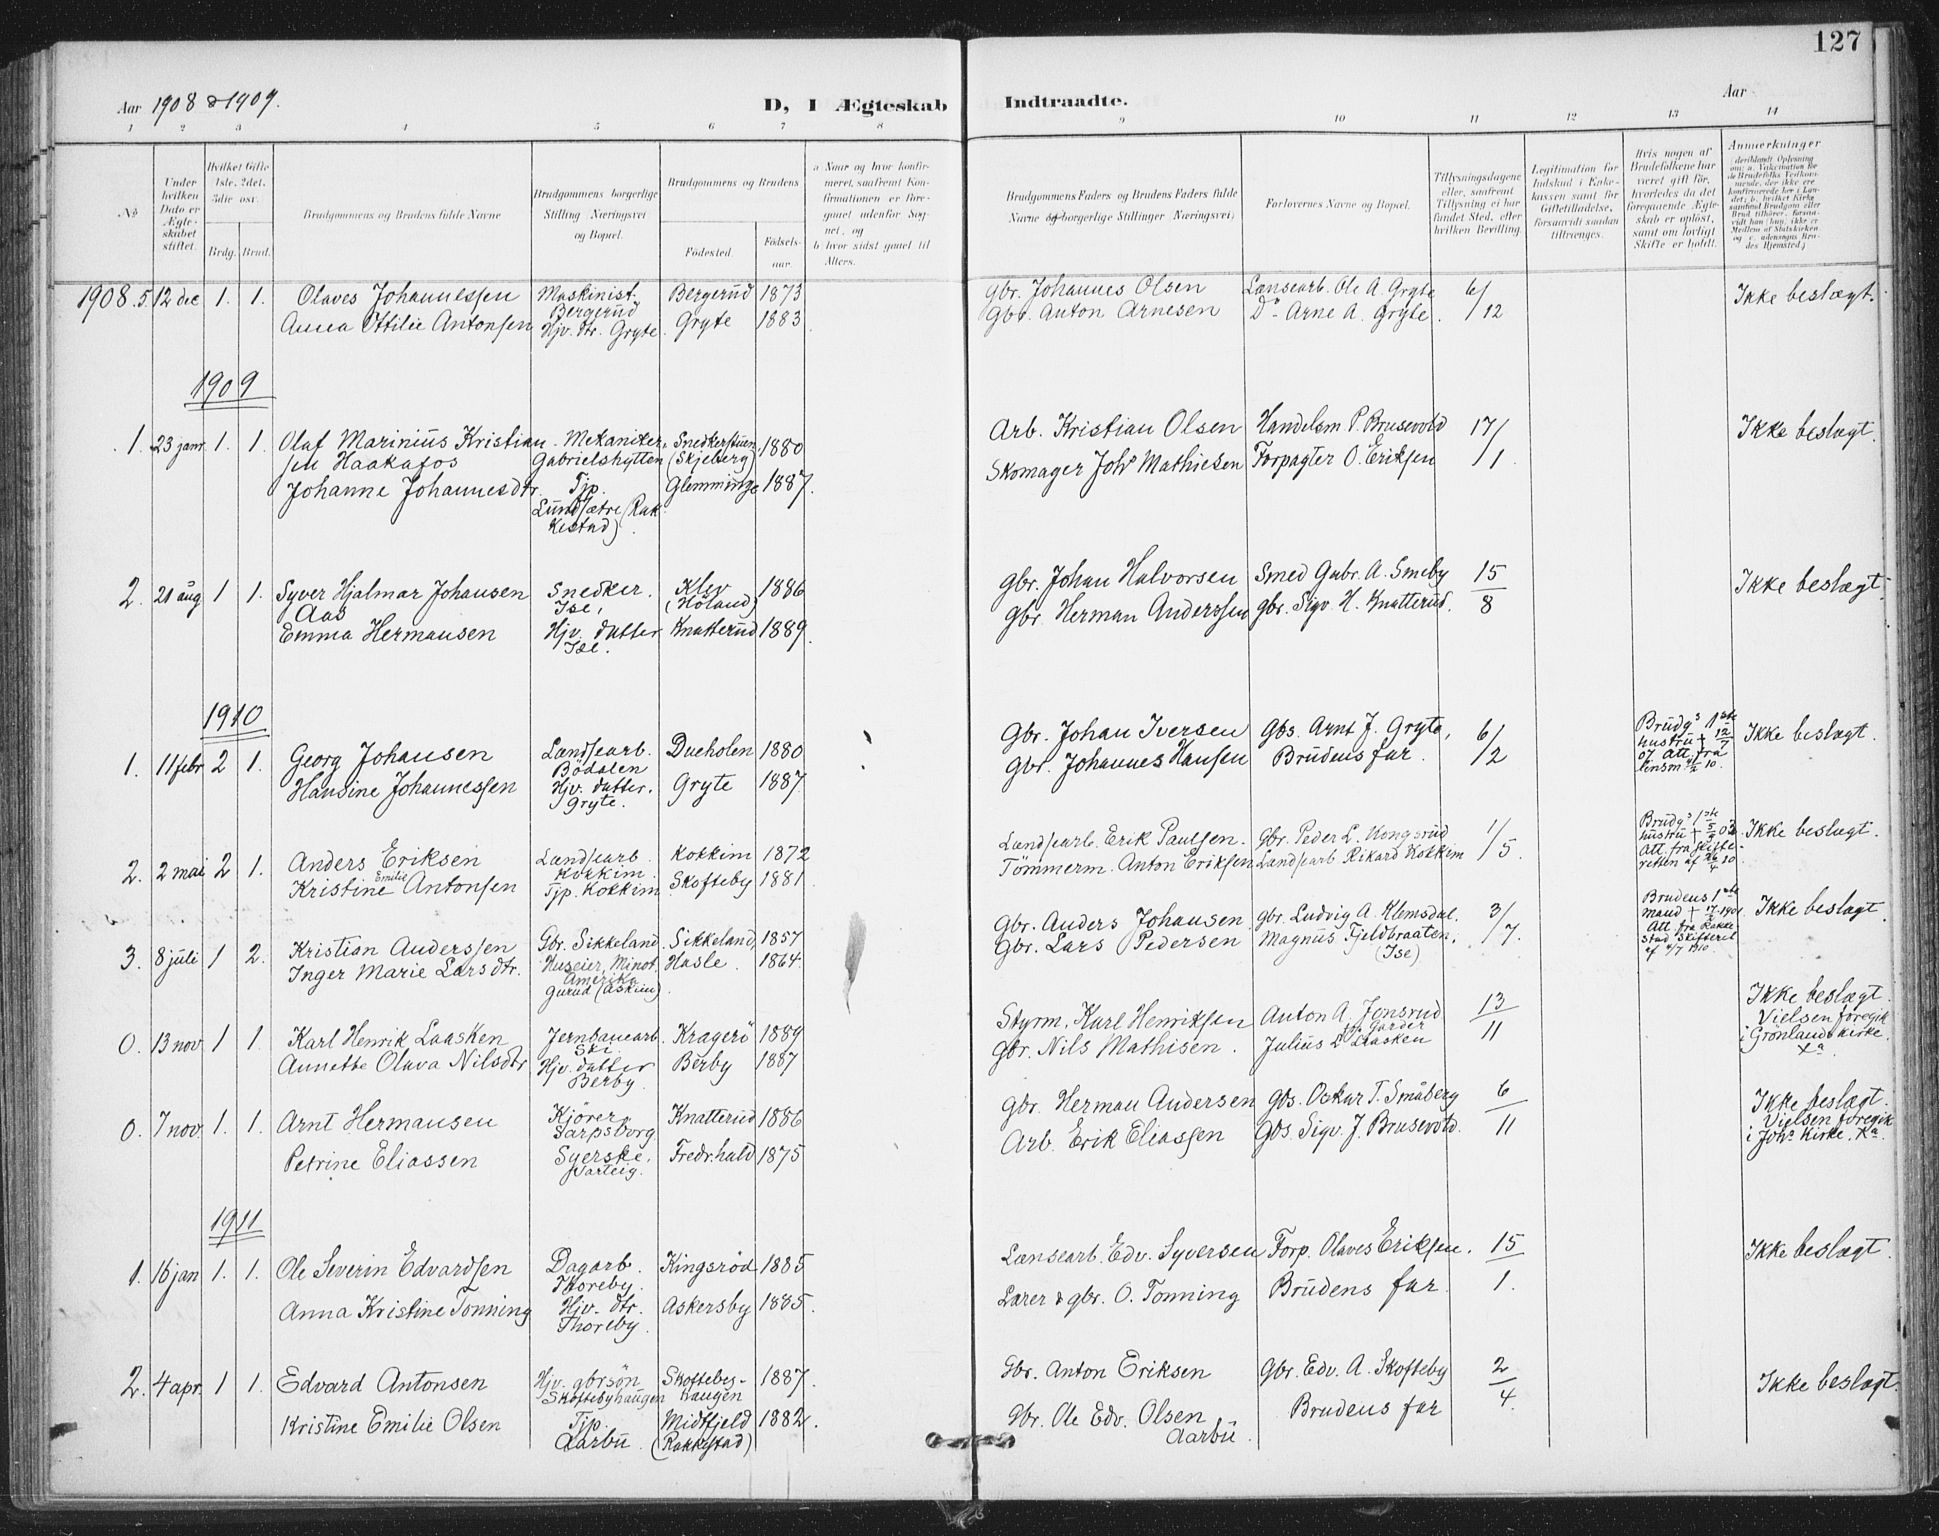 127
Aar 1908 & 1909.
D, I Ægteskab Indtraadte.
Aar
1 2 3 4 5 6 7 8 9 10 11 12 13 14
No
Under hvilken Dato er Ægteskabet stiftet.
Hvilket Gifte 1ste. 2det. 3die osv.
Brdg. Brud.
Brudgommens og Brudens fulde Navne
Brudgommens borgerlige Stilling Næringsvei og Bopæl.
Brudgommens og Brudens
Fødested. Fødselsaar.
a Naar og hvor konfirmeret, saafremt Konfirmationen er foregaaet udenfor Sognet, og
b hvor sidst gaaet til Alters.
Brudgommens Faders og Brudens Faders fulde Navne og borgerlige Stillinger Næringsvei
Forlovernes Navne og Bopæl.
Tillysningsdagene eller, saafremt Tillysning ei har fundet Sted, efter hvilken Bevilling.
Legitimation for Indskud i Enkekassen samt for Giftetilladelse, forsaavidt saadan tiltrænges.
Hvis nogen af Brudefolkene har været gift før, hvorledes da det foregaaende Ægteskab er opløst, samt om lovligt Skifte er holdt.
Anmerkninger
1908. 5 12 dec 1. 1. Olaves Johannessen Maskinist Bergerud Bergerud 1873 Gbr. Johannes Olsen Lænsearb. Ole A. Gryte 6/12 Ikke beslægt.
Anna Ottilie Antonsen Hjv. dtr. Gryte. Gryte 1883 Gbr. Anton Arnesen Do Arne A. Gryte.
1909
1. 23 janr. 1. 1. Olaf Marinius Kristiansen Haakafos Mekaniker Gabrielshytten Snedkerstuen (Skjeberg) 1880 Arb. Kristian Olsen Handelsm P. Brusevold 17/1 Ikke beslægt.
Johanne Johannesdtr. Tjp. Lundsætre (Rakkestad) Glemminge 1887. Skomager Johs Mathiesen Forpagter O. Eriksen
2. 21 aug 1 1. Syver Hjalmar Johansen Aas Snedker. Ise, Klev (Höland) 1886 Gbr. Johan Halvorsen Smed Gabr. A. Smeby 15/8 Ikke beslægt.
Emma Hermansen Hjv. datter Ise. Knatterud 1889. Gbr. Herman Anderssen Gbr. Sigv. H. Knatterud.
1910
1. 11 febr 2 1. Georg Johansen Lændsearb. Bödalen Dueholen 1880 Gbr. Johan Iversen Gbs. Arnt J. Gryte, 6/2 Brudgs 1ste hustru + 12/7 07 Att. fra lensm. 10. Ikke beslægt.
Hansine Johannessen Hjv. datter. Gryte. Gryte 1887. Gbr. Johannes Hansen Brudens far.
2. 2 mai 2 1. Anders Eriksen Lændsearb. Kokkim. Kokkim 1872 Lændsearb. Erik Paulsen. Gbr. Peder L. Kongsrud 1/5. Brudgs 1ste hustru + Att. fra skifteretten af 26/4 10 Ikke beslægt.
Kristine Emilie Antonsen Tjp. Kokkim Skofteby 1881. Tömmerm. Anton Eriksen Lændsearb Rikard Kokkim
3. 8 juli 1 2. Kristian Anderssen Gbr. Sikkeland Sikkeland 1857 Gbr. Anders Johansen Gbr. Ludvig A. Klemsdal. 3/7. Brudens 1ste mand + 1901 Att. fra Rakkestad Skifteret af /7 1910. Ikke beslægt.
Inger Marie Larsdtr. Huseier, Minot. Amerika Gurud (Askim). Hasle. 1864. Gbr. Lars Pedersen Magnus Fjeldbraaten, (Ise)
0. 13 nov 1 1. Karl Henrik Laasken Jernbanearb. Ski. Kragerö 1889 Styrm. Karl Henriksen Anton A. Jonsrud 13/11 Ikke beslægt. Vielsen foregik i Grönlands kirke. Xa.
Annette Olava Nilsdtr Hjv. datter Berby. Berby 1887 Gbr. Nils Mathisen. Julius L Laasken
0. 7 nov. 1. 1. Arnt Hermansen Kjörer Sarpsborg Knatterud 1886 Gbr. Herman Andersen Gbs. Oskar T. Småberg 6/11 Ikke beslægt. Vielsen foregik i Johs Kirke. Xa.
Petrine Eliassen Syerske, Varteig. Fredr.hald 1875 Arb. Erik Eliassen Gbs. Sigv. J. Brusevold.
1911
1. 16 jan 1. 1. Ole Severin Edvardsen Dagarb. Thoreby. Kingsröd 1885 Lænsearb. Edv. Syversen Forp. Olaves Eriksen. 15/1. Ikke beslægt.
Anna Kristine Tonning Hjv. dtr. Thoreby. Askersby 1885. Lærer & gbr. O. Tonning Brudens far.
2. 4 apr. 1 1. Edvard Antonsen Hjv. gbrsön Skoftebyhaugen Skoftebyhaugen 1887. Gbr. Anton Eriksen Gbr. Edv. A. Skofteby 2/4. Ikke beslægt.
Kristine Emilie Olsen Tjp. Aarbu. Midtfjeld (Rakkestad) 1882. Gbr. Ole Edv. Olsen Aarbu. Brudens far